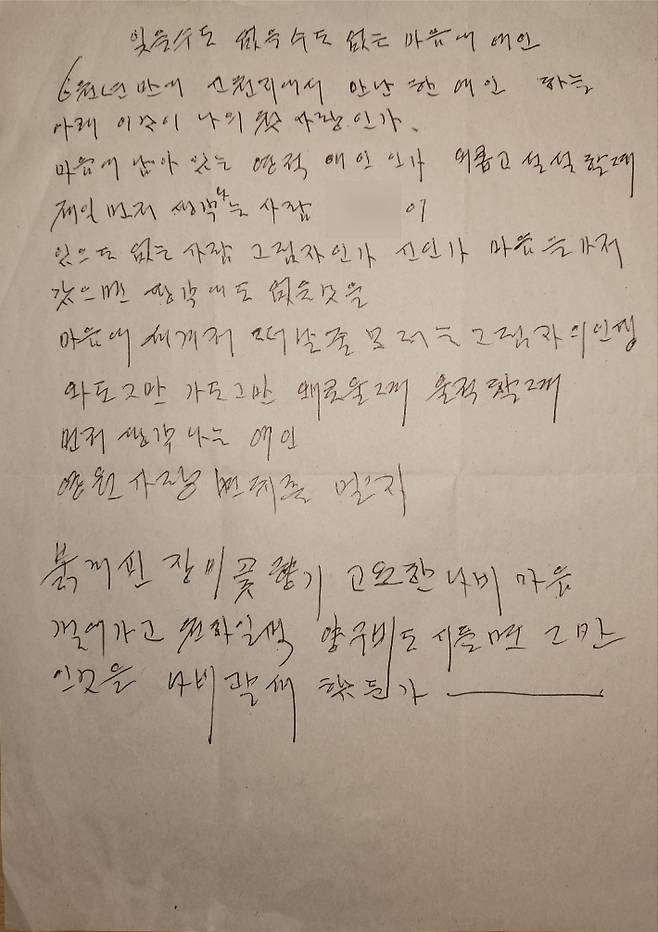 잊을수도 없을수도 없는 마음에 애인
6월년만에 신원리에서 만난 한 애인 하늘
아래 이것이 나의 첫 사랑인가.
마음에 남아 있는 영적 애인인가 외롭고 쓸쓸할때
제일먼저 생각나는 사람 이
있으도 없는 사람 그림자인가 신인가 마음을가저
갔으면 생각에도 없을것을
마음에 세계저 떠날줄 모러는 그림자의인생
와도그만 가도그만 왜로울때 울적할때
먼저 생각나는 애인
영원 사랑
붉게핀 장미꽃 향기 고요한 나비 마음
꺾어가고 원화일색 양구비도 시들면 그만
인것을 나비